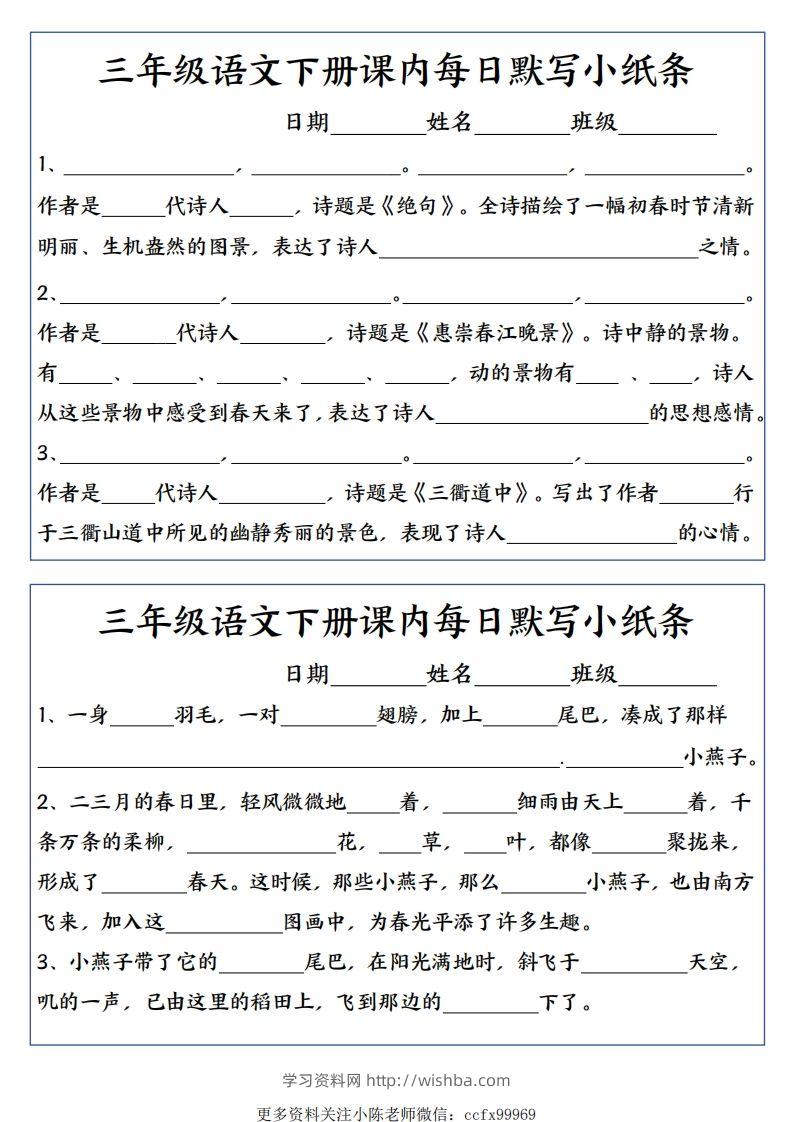 三年级语文下册课内每日默写小纸条
日期________姓名________班级________
1、________________，______________。______________，_______________。
作者是______代诗人______，诗题是《绝句》。全诗描绘了一幅初春时节清新
明丽、生机盎然的图景，表达了诗人______________________________之情。
2、_______________，_______________。________________，_______________。
作者是_______代诗人________，诗题是《惠崇春江晚景》。诗中静的景物。
有_____、______、______、______、______，动的景物有____ 、____，诗人
从这些景物中感受到春天来了，表达了诗人____________________的思想感情。
3、_______________，________________。_______________，_______________。
作者是_____代诗人__________，诗题是《三衢道中》。写出了作者_______行
于三衢山道中所见的幽静秀丽的景色，表现了诗人________________的心情。
三年级语文下册课内每日默写小纸条
日期________姓名________班级________
1、一身______羽毛，一对_________翅膀，加上_______尾巴，凑成了那样
_________________________________________________.___________小燕子。
2、二三月的春日里，轻风微微地_____着，_______细雨由天上______着，千
条万条的柔柳，______________花，____草，____叶，都像_______聚拢来，
形成了________春天。这时候，那些小燕子，那么________小燕子，也由南方
飞来，加入这___________图画中，为春光平添了许多生趣。
3、小燕子带了它的________尾巴，在阳光满地时，斜飞于__________天空，
叽的一声，已由这里的稻田上，飞到那边的_________下了。
学习资料网 http://wishba.com
更多资料关注小陈老师微信：ccfx99969